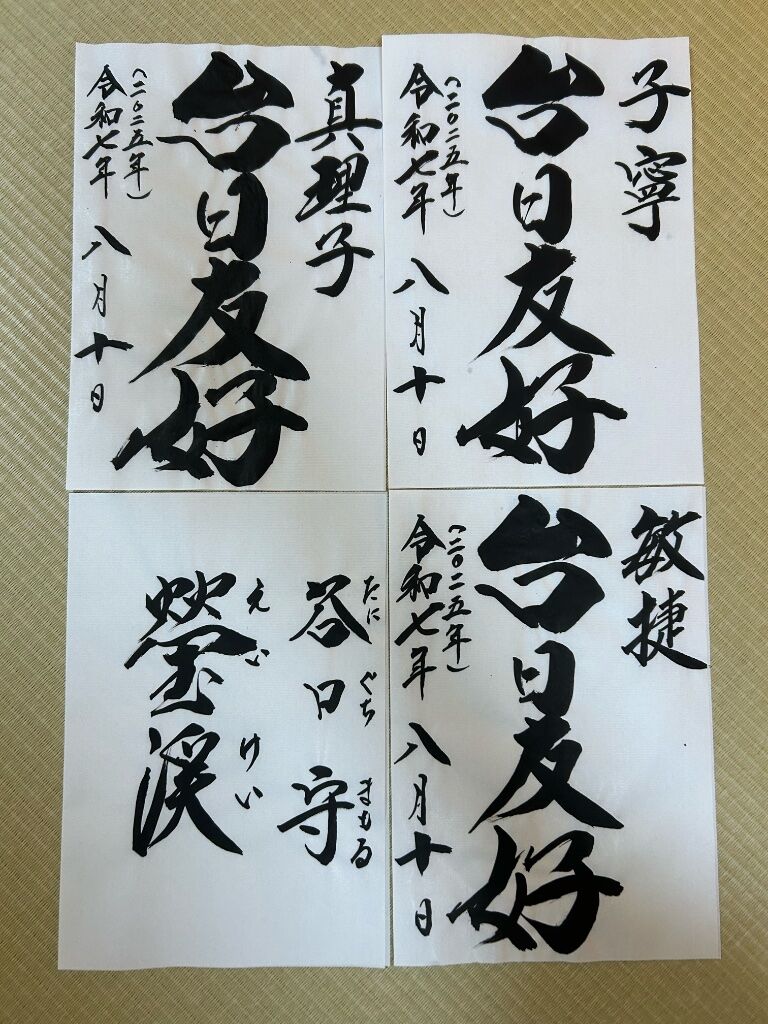 真理子
台日友好
(二〇二五年)
令和七年 八月十日
子寧
台日友好
(二〇二五年)
令和七年 八月十日
谷口 守
たに ぐち まもる
瑩渓
えい けい
敏捷
台日友好
(二〇二五年)
令和七年 八月十日